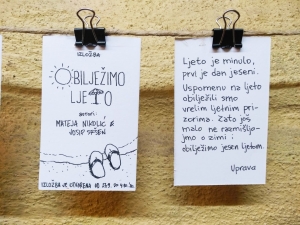 IZLOŽBA
OBILJEŽIMO
LJETO
autori:
MATEJA NIKOLIĆ &
JOSIP SRŠEN
IZLOŽBA JE OTVORENA OD
Ljeto je minulo,
prvi je dan jeseni.
Uspomenu na ljeto
obilježili smo
vrelim ljetnim pri-
zorima. Zato još
malo ne razmišljaj-
mo o zimi i
obilježimo jesen ljetom.
Uprava